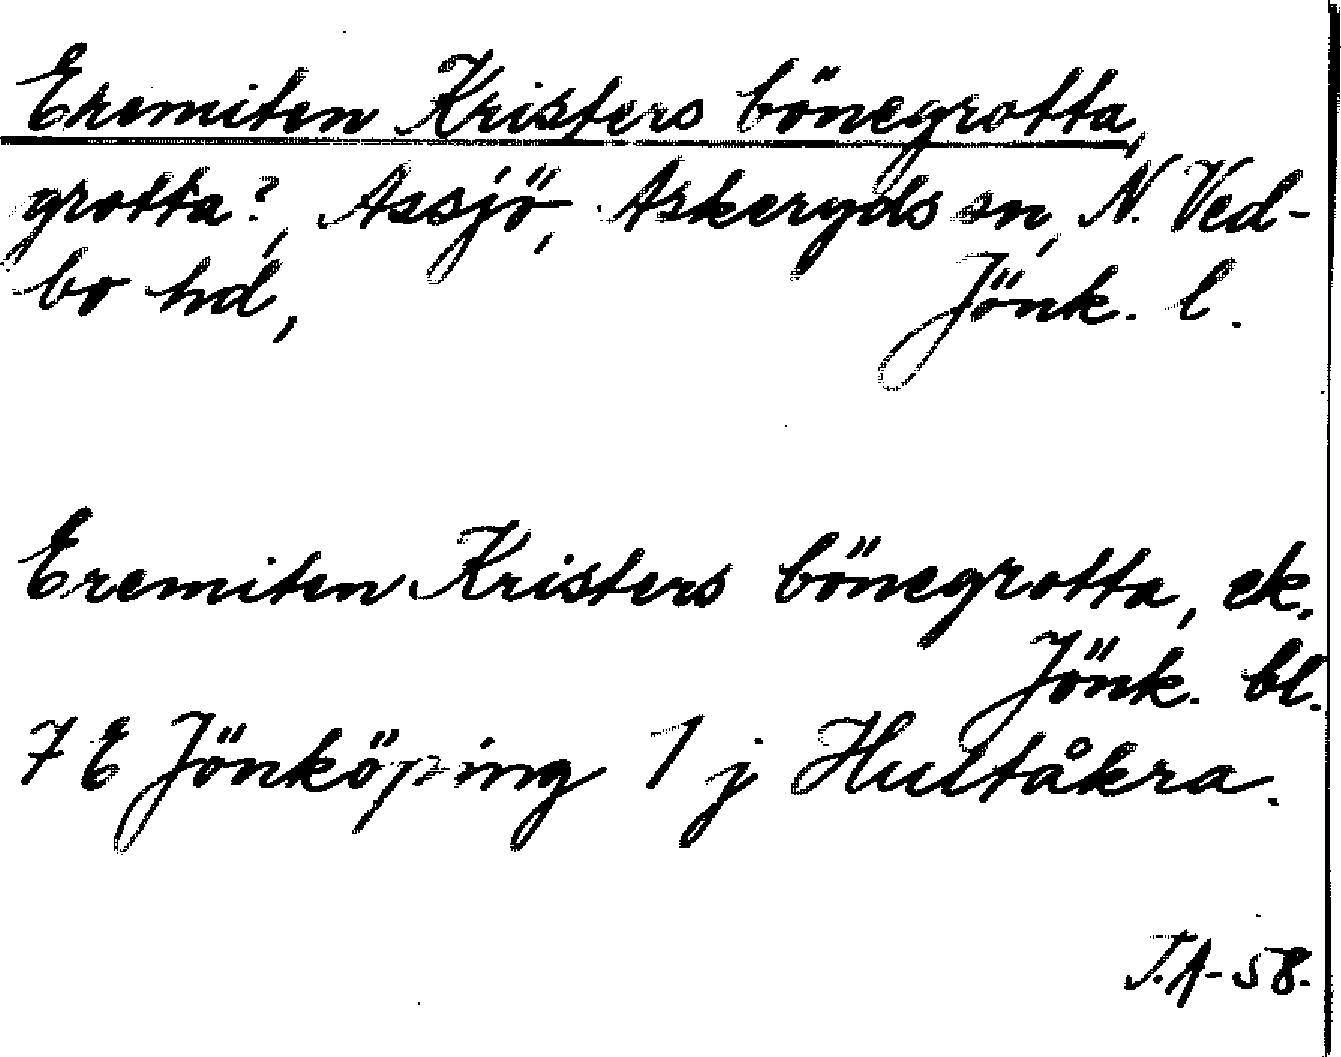 Eremiten Kristers bönegrotta,
grotta?, Assjö, Askeryds sn, N. Ved-
bo hd, Jönk. l.
Eremiten Kristers bönegrotta, ek.
Jönk. bl.
7 E Jönköping 1 j Hultåkra.
T.A-58.